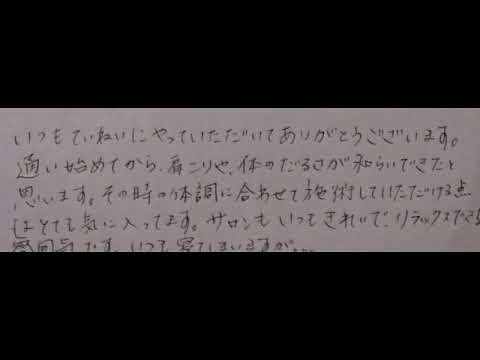 いつもていねいにやっていただいてありがとうございます。
通い始めてから、肩こりや、体のだるさが和らいできたと
思います。その時の体調に合わせて施術していただける点
はとても気に入ってます。サロンもいつもきれいで、リラックスできる
雰囲気です。いつも寝てしまいますが…